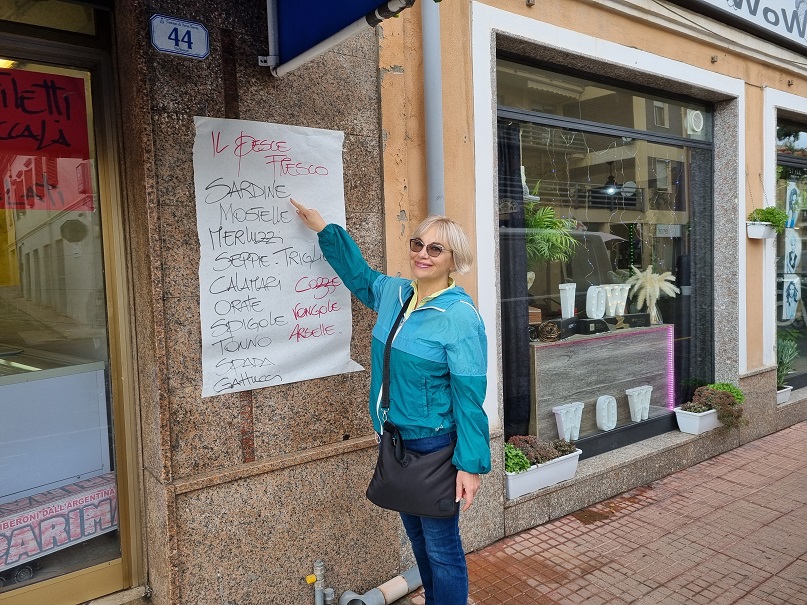 44
WoW
FILETTI
IL PESCE
FRESCO
SARDINE
MOSELLE
MERLUZZ
SEPPE. TRIGL
CALAMARI
COZZE
ORATE
VONGOLE
SPIGOLE
ARSELLE.
TONNO
SPADA
GATTUCC
GAMBERONI DALL'ARGENTINA